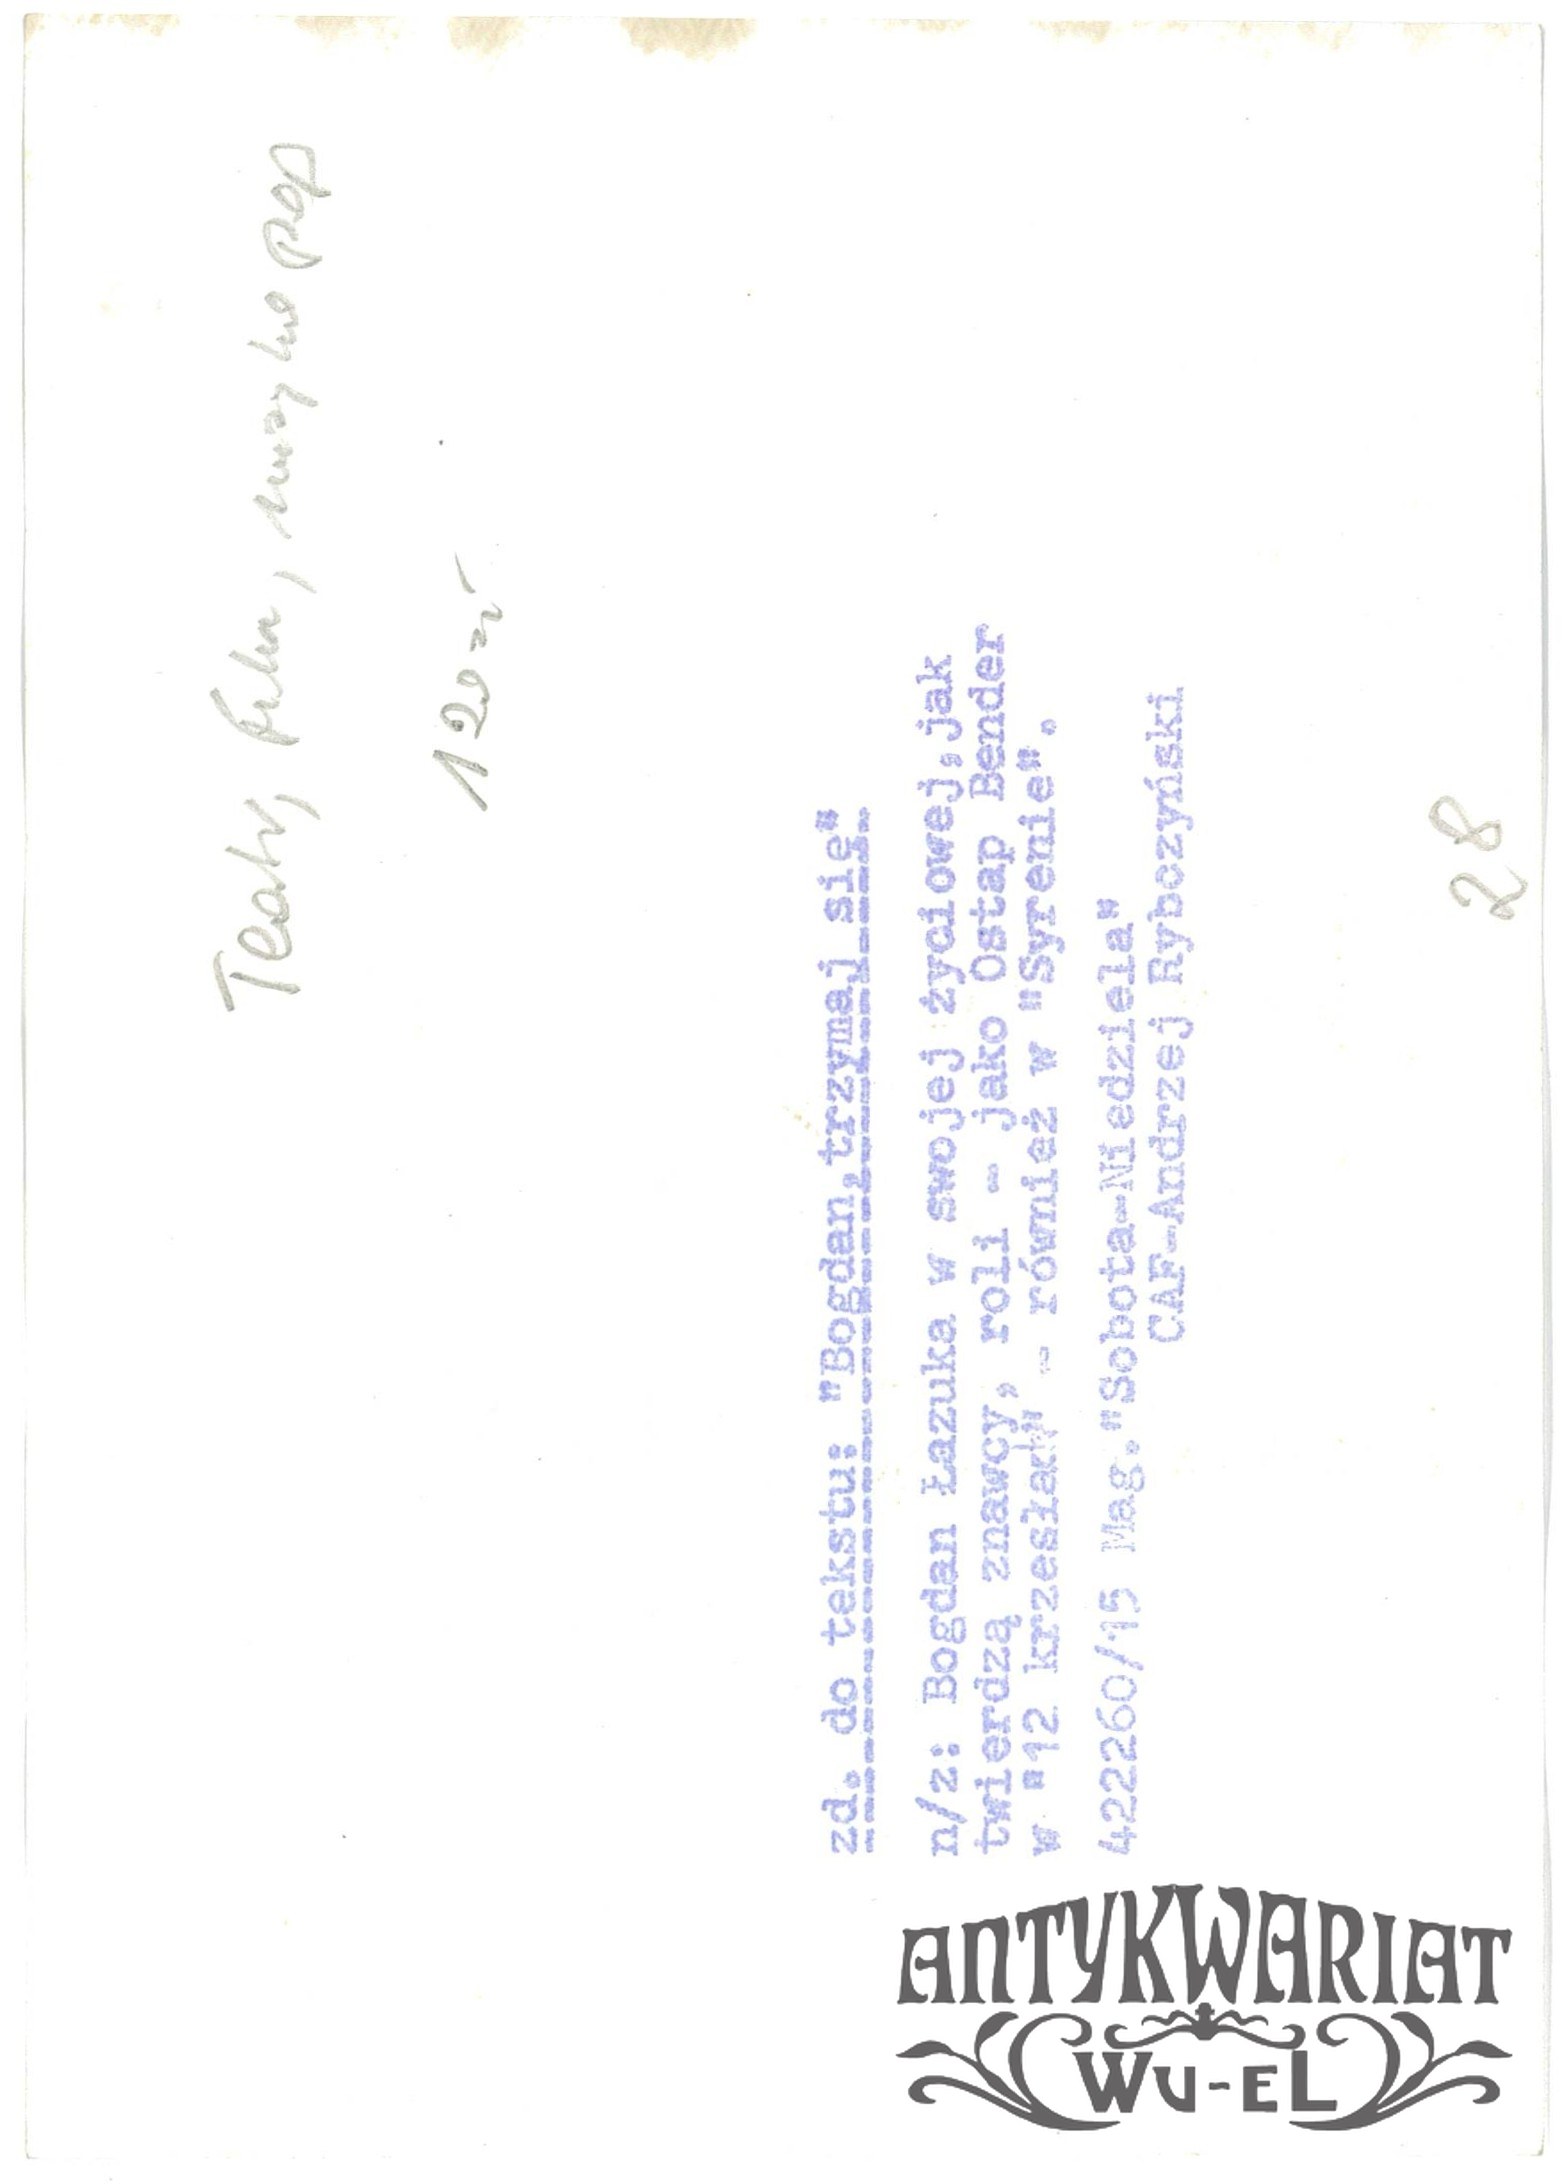 Teatr, film, muzyka pop
zd. do tekstu: "Bogdan,trzymaj się"
n/z: Bogdan Łazuka w swojej życiowej,jak
twierdzą znawcy, roli - jako Ostap Bender
w "12 krzesłach" - również w "Syrenie".
42260/15 Mag."Sobota-Niedziela"
CAF-Andrzej Rybczyński
28
ANTYKWARIAT
WU-EL